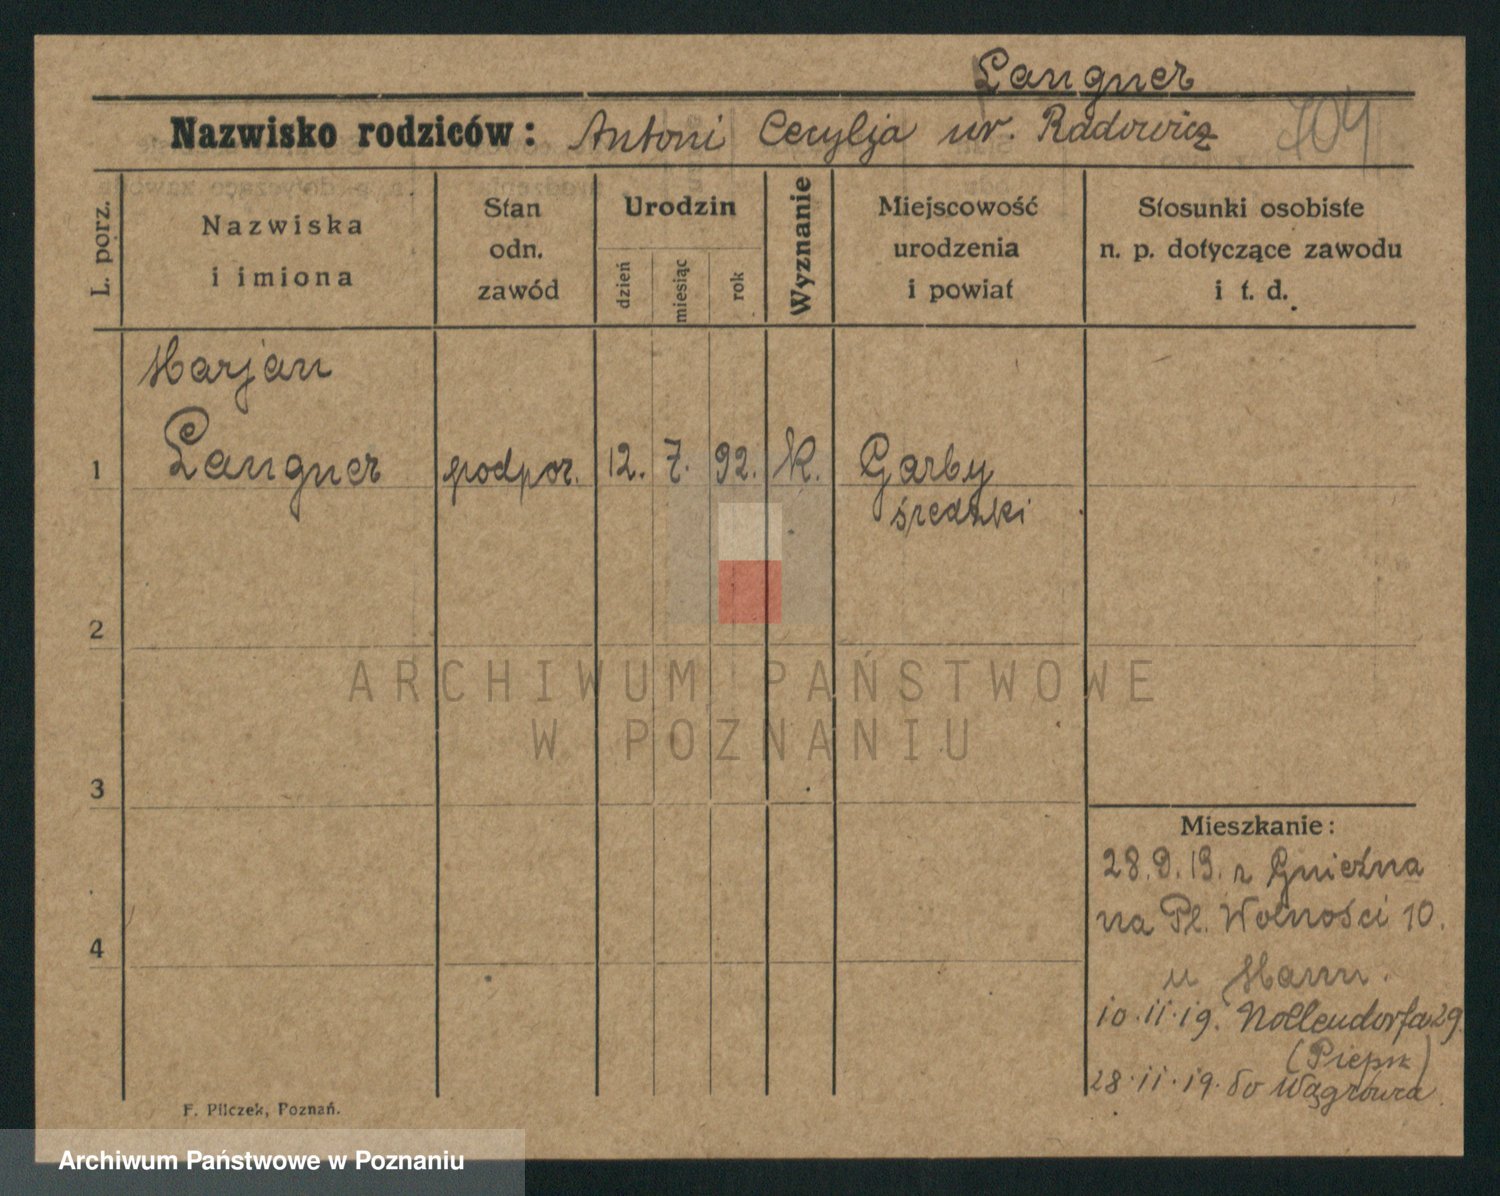 Langner
Nazwisko rodziców: Antoni Cecylja ur. Radowicz 104
L. porz.
Nazwiska
i imiona
Stan
odn.
zawód
Urodzin
dzień
miesiąc
rok
Wyznanie
Miejscowość
urodzenia
i powiat
Stosunki osobiste
n. p. dotyczące zawodu
i t. d.
Marjan
1 Langner podpor. 12. 7. 92. K. Garby
średzki
2
ARCHIWUM PAŃSTWOWE
W POZNANIU
3
Mieszkanie:
28.9.19. z Gniezna
na Pl. Wolności 10.
4
u Mann.
10.11.19. Nollendorfa 29
(Piepsz)
28.11.19. do Wągrówca.
F. Pilczek, Poznań.
Archiwum Państwowe w Poznaniu